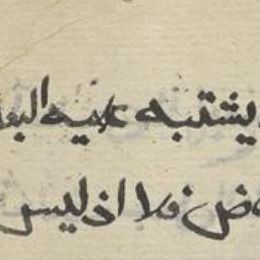 يشتبه عليه البو
ض فلا اذ ليس